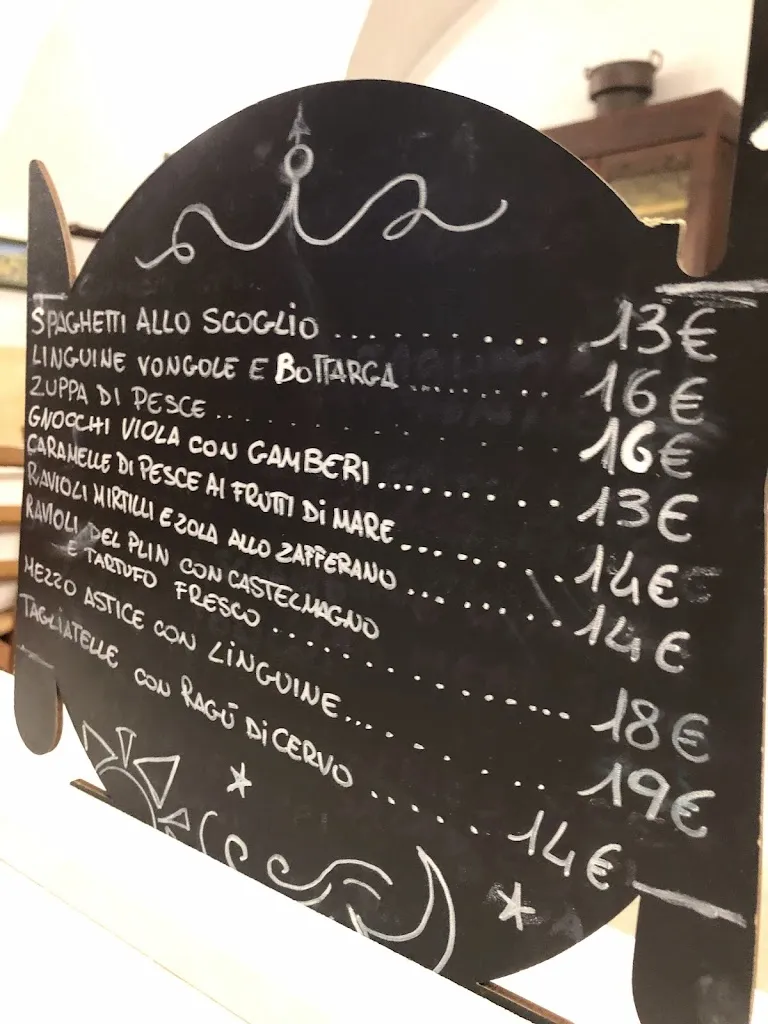 SPAGHETTI ALLO SCOGLIO ........ 13€
LINGUINE VONGOLE E BOTTARGA ........ 16€
ZUPPA DI PESCE ........ 16€
GNOCCHI VIOLA CON GAMBERI ........ 13€
CARAMELLE DI PESCE AI FRUTTI DI MARE ........ 14€
RAVIOLI MIRTILLI E ZOLA ALLO ZAFFERANO ........ 14€
RAVIOLI DEL PLIN CON CASTELMAGNO
E TARTUFO FRESCO ........ 18€
MEZZO ASTICE CON LINGUINE ........ 19€
TAGLIATELLE CON RAGÙ DI CERVO ...... 14€